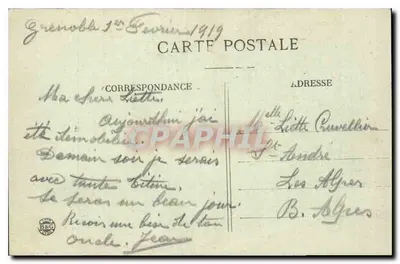 Grenoble 1er Fevrier 1919
CARTE POSTALE
CORRESPONDANCE
ADRESSE
Ma chere Liette
aujourdhui j'ai
été démobilisé
CPAPHIL
Demain soir je serais
avec tantes Titine.
Se seras un beau jour.
Recois une bise de ton
oncle. Jean
Melle Liette Cruvellier
St André
Les Alpes
B. Alpes